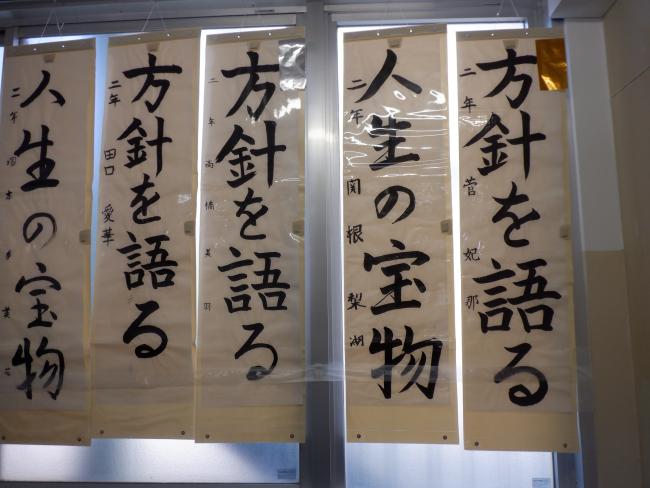 方針を語る
二年 菅 妃那
人生の宝物
二年 関根 梨湖
方針を語る
二年 高橋 美羽
方針を語る
二年 田口 愛華
人生の宝物
二年